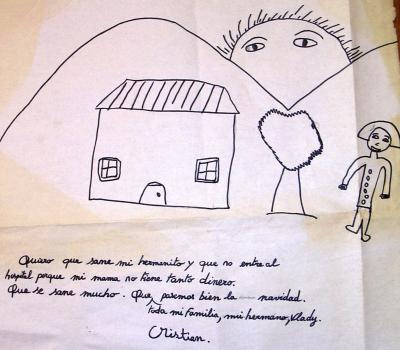 Quiero que sane mi hermanito y que no entre al
hospital porque mi mama no tiene tanto dinero.
Que se sane mucho. Que pasemos bien la navidad.
toda mi familia, mi hermano, Vlady.
Cristian.